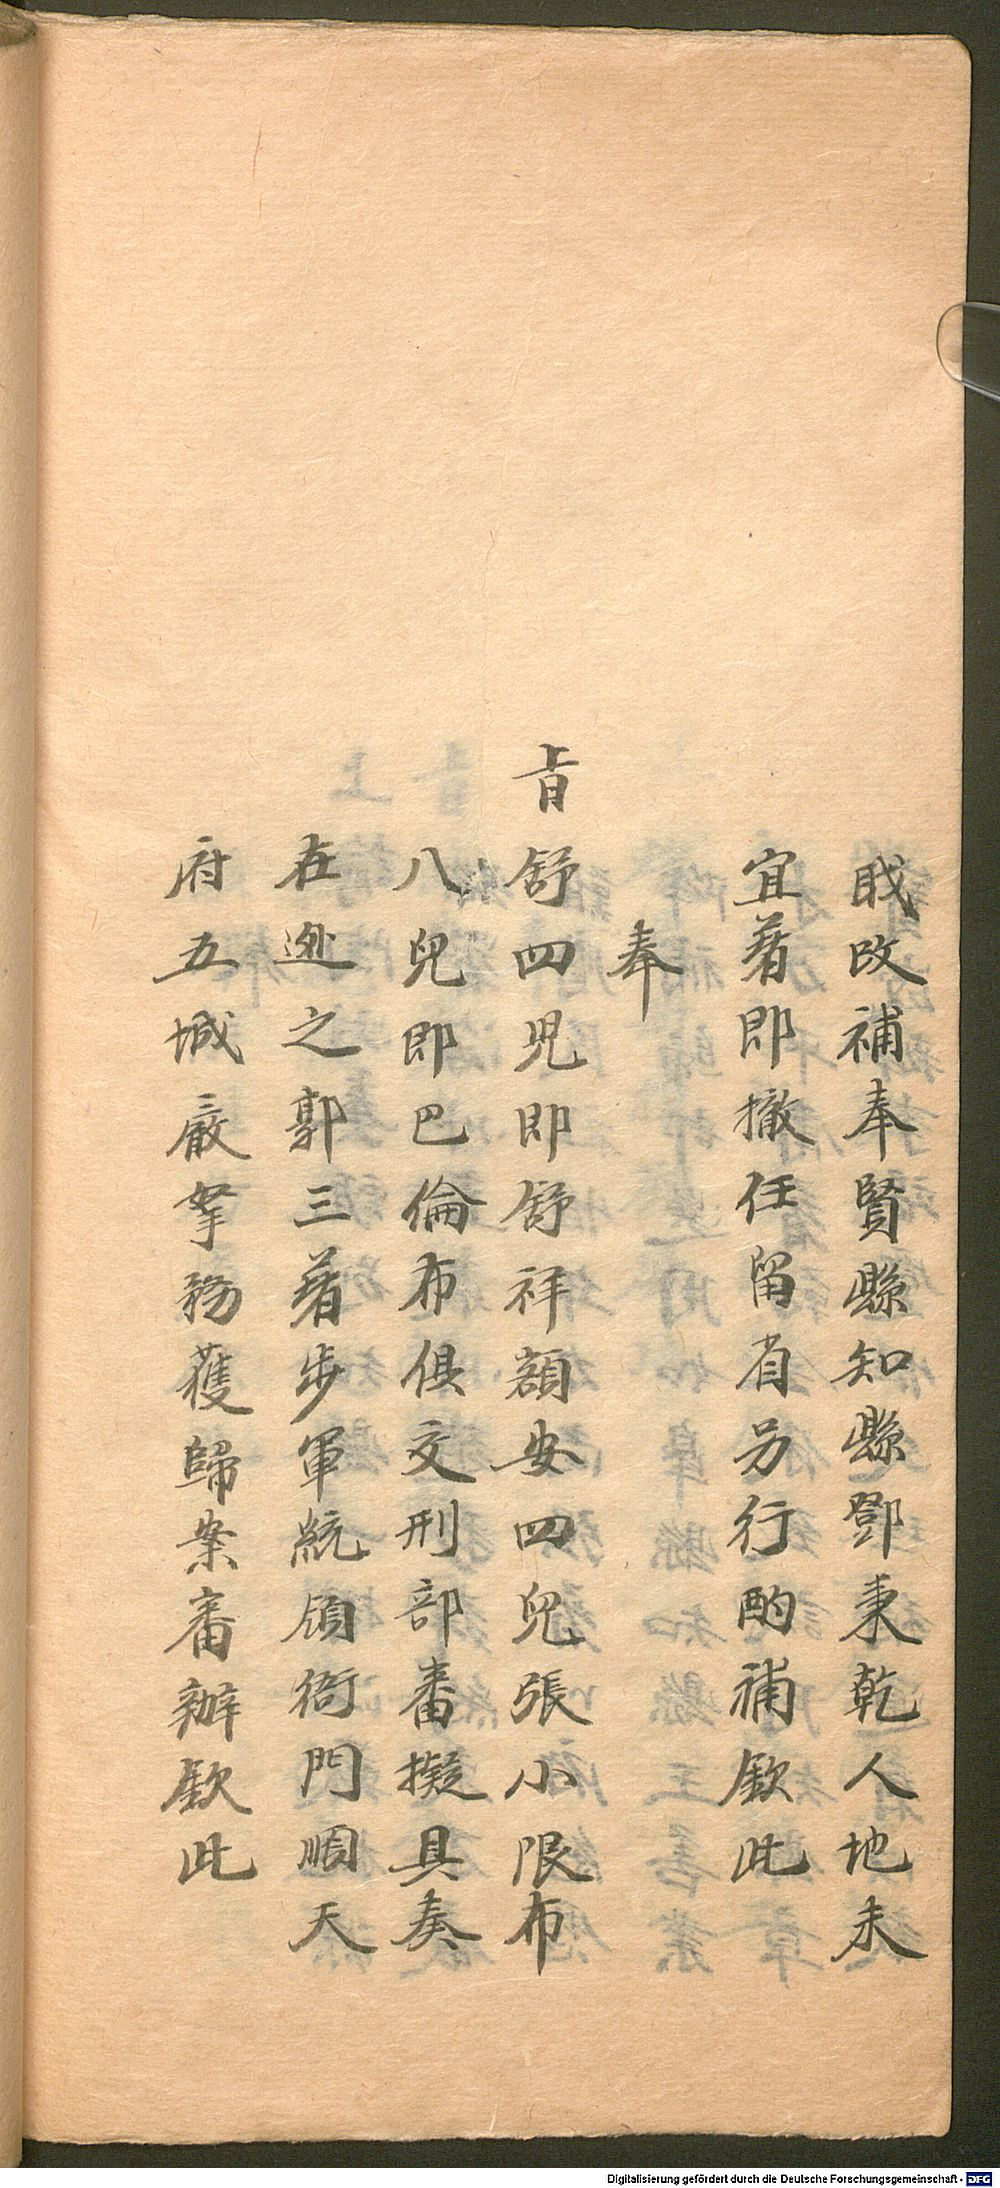 戝改補奉賢縣知縣鄧秉乾人地未
宜著即撤任留省另行酌補欽此
奉
旨舒四児即舒祥額安四兒張小限布
八兒即巴倫布俱交刑部審擬具奏
在逃之郭三著步軍統領衙門順天
府五城嚴拏務獲歸案審辦欽此
Digitalisierung gefördert durch die Deutsche Forschungsgemeinschaft - DFG